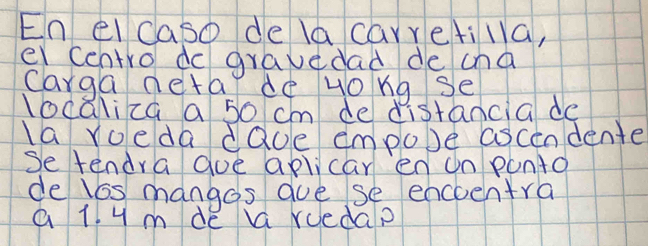 En el caso de la carretilla,
el centro de gravedad de una
carga neta de 40 kg se
localiza a 50 cm de distancia de
la rueda ¿Que empuje ascendente
se tendra que aplicar en un punto
de los mangos que se encuentra
a 1.4 m de la rueda?